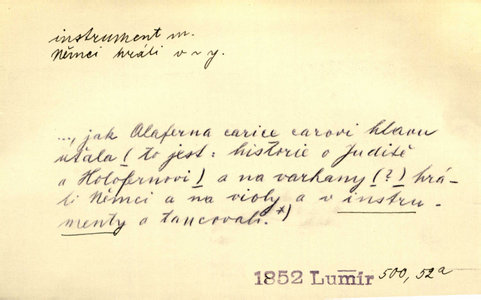 instrument m.
Němci hráli v ~ y.
..., jak Olaferna carice carovi hlavu
uťala (to jest: historie o Juditě
a Holofernovi) a na varhany (?) hrá-
li Němci a na violy a v instru-
menty a tancovali.*)
1852 Lumír 500, 52a